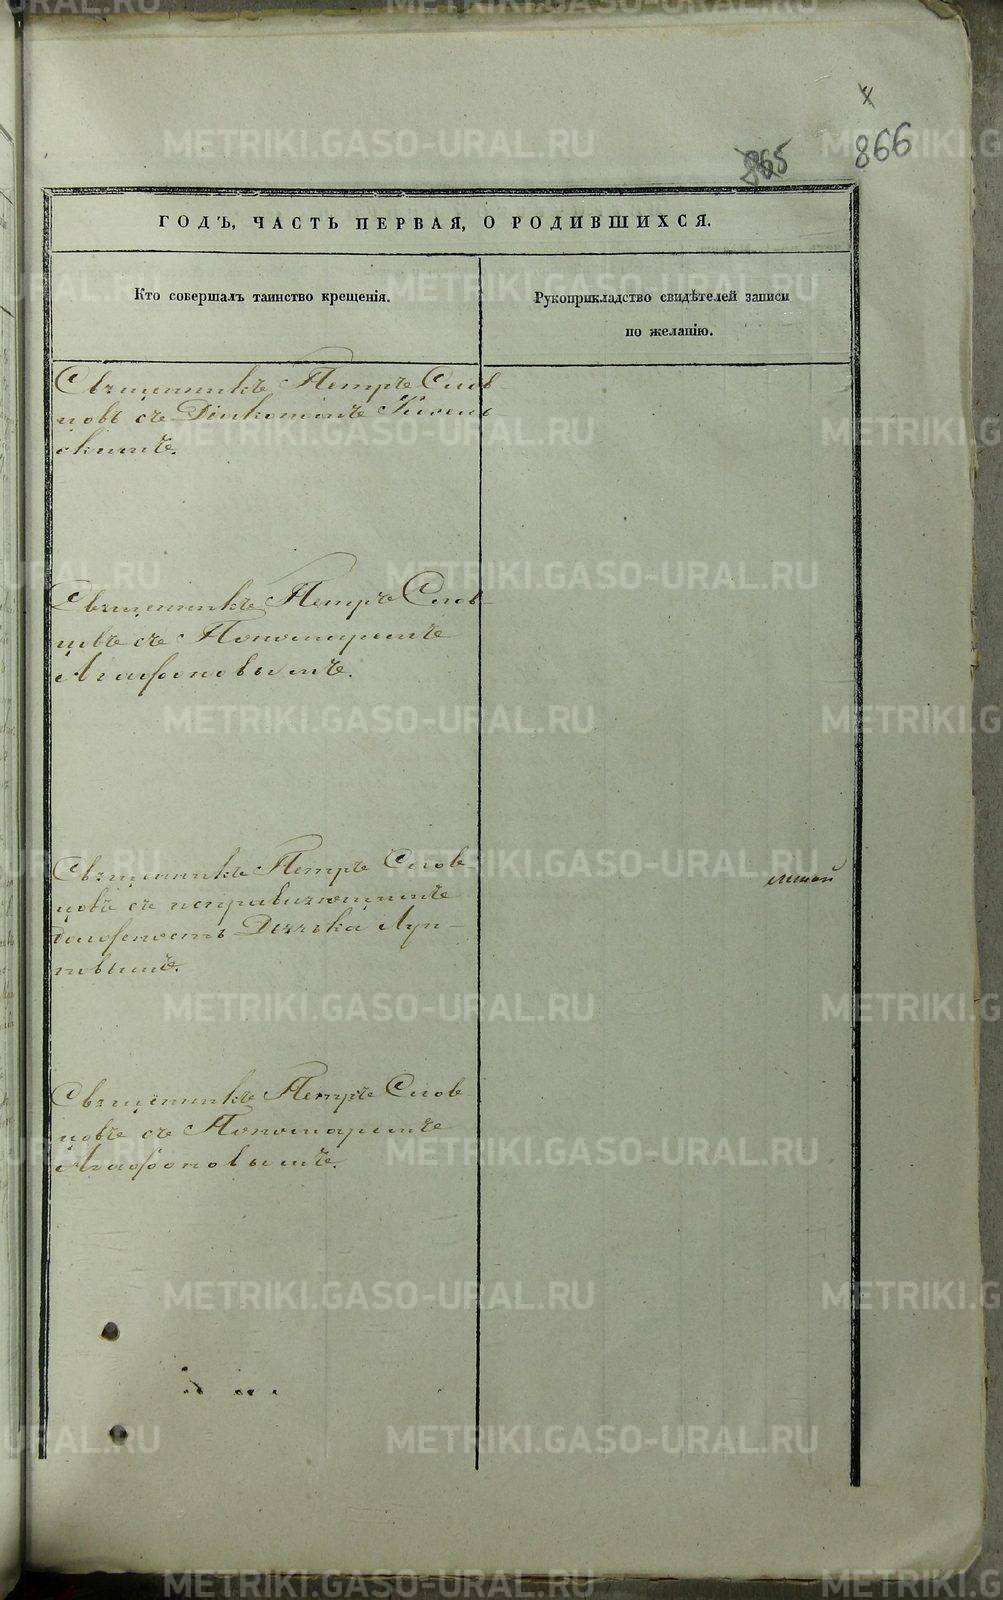 866
865
ГОДЪ, ЧАСТЬ ПЕРВАЯ, О РОДИВШИХСЯ.
Кто совершалъ таинство крещенія.
Рукоприкладство свидѣтелей записи
по желанію.
Священникъ Петръ Слов-
цовъ съ Діякономъ
скимъ.
Священникъ Петръ Слов-
цовъ съ Пономаремъ
Агафоновымъ.
Священникъ Петръ Слов
цовъ съ исправляющимъ
должность Дьячка Луп-
повымъ.
Священникъ Петръ Слов
цовъ съ Пономаремъ
Агафоновымъ.
METRIKI.GASO-URAL.RU